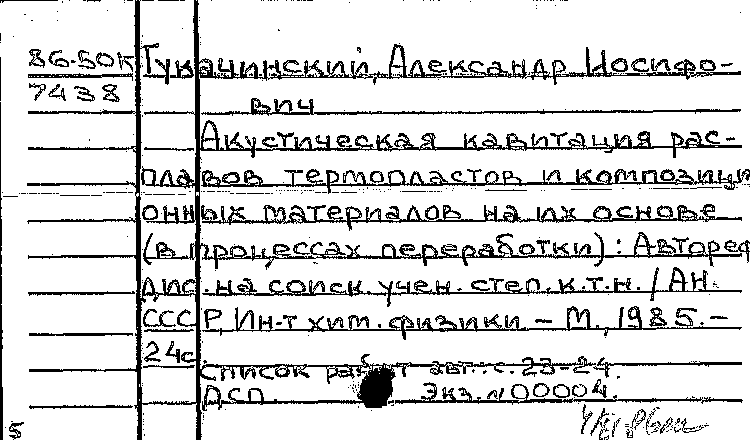 86-50К Гукачинский, Александр Иосифо-
7438 вич
Акустическая кавитация рас-
плавов термопластов и композици
онных материалов на их основе
(в процессах переработки): Автореф
дис. на соиск. учен. степ. к.т.н. / АН
СССР, Ин-т хим. физики – М., 1985. –
24с
Список работ авт.: с. 23-24.
ДСП. Экз. №00004.
5